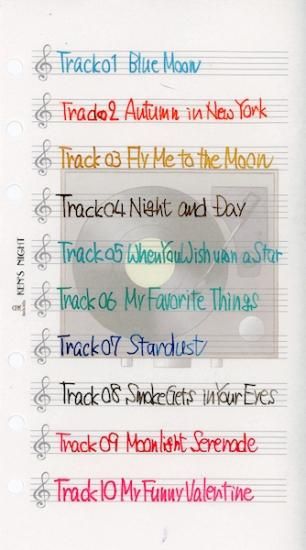 Track01 Blue Moon
Track02 Autumn in New York
Track 03 Fly Me to the Moon
Track04 Night and Day
Track 05 When You Wish upon a Star
Track 06 My Favorite Things
Track 07 Stardust
Track 08 Smoke Gets in Your Eyes
Track 09 Moonlight Serenade
Track 10 My Funny Valentine
KEN'S NIGHT